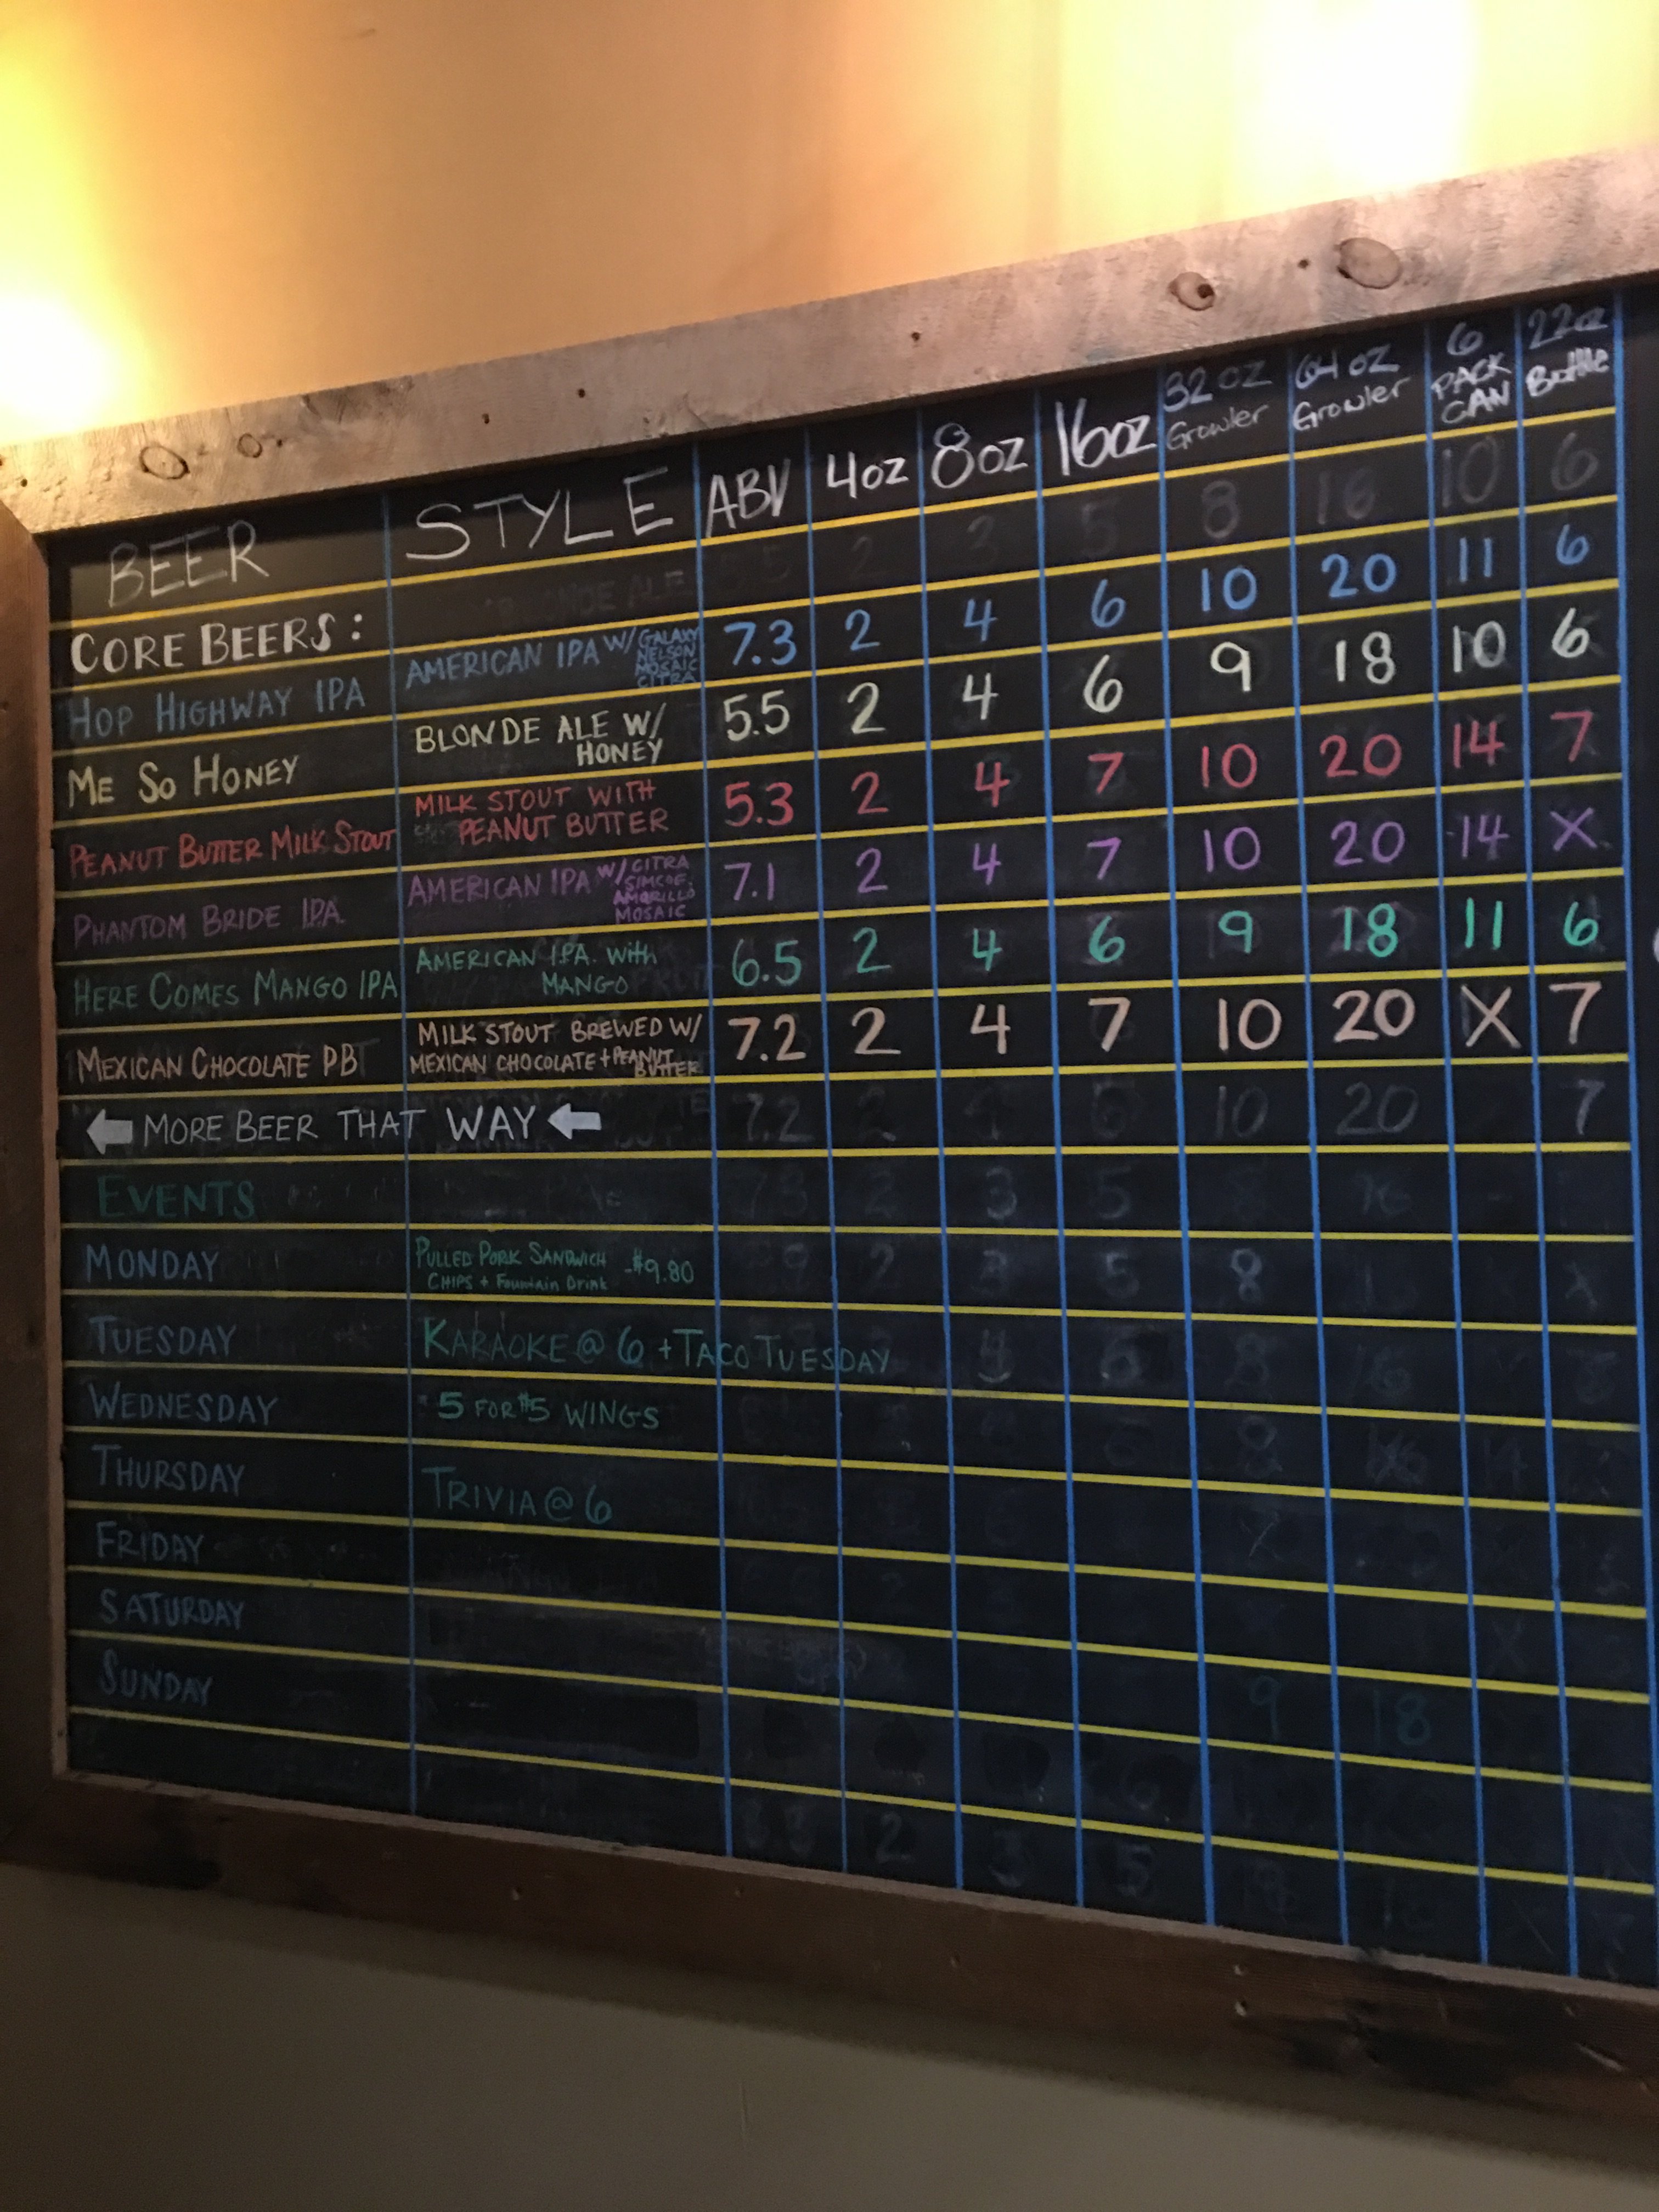 BEER STYLE ABV 4oz 8oz 16oz 32 oz Growler 64 oz Growler 6 PACK CAN 22oz Bottle
CORE BEERS:
HOP HIGHWAY IPA AMERICAN IPA W/ GALAXY NELSON MOSAIC CITRA 7.3 2 4 6 10 20 11 6
ME SO HONEY BLONDE ALE W/ HONEY 5.5 2 4 6 9 18 10 6
PEANUT BUTTER MILK STOUT MILK STOUT WITH PEANUT BUTTER 5.3 2 4 7 10 20 14 7
PHANTOM BRIDE IPA. AMERICAN IPA W/ CITRA SIMCOE, AMARILLO MOSAIC 7.1 2 4 7 10 20 14 X
HERE COMES MANGO IPA AMERICAN I.P.A. with MANGO 6.5 2 4 6 9 18 11 6
MEXICAN CHOCOLATE PB MILK STOUT BREWED W/ MEXICAN CHOCOLATE + PEANUT BUTTER 7.2 2 4 7 10 20 X 7
← MORE BEER THAT WAY ← 7.2 10 20 7
EVENTS
MONDAY PULLED PORK SANDWICH CHIPS + Fountain Drink -$9.80
TUESDAY KARAOKE @ 6 + TACO TUESDAY
WEDNESDAY 5 FOR $5 WINGS
THURSDAY TRIVIA @ 6
FRIDAY
SATURDAY
SUNDAY